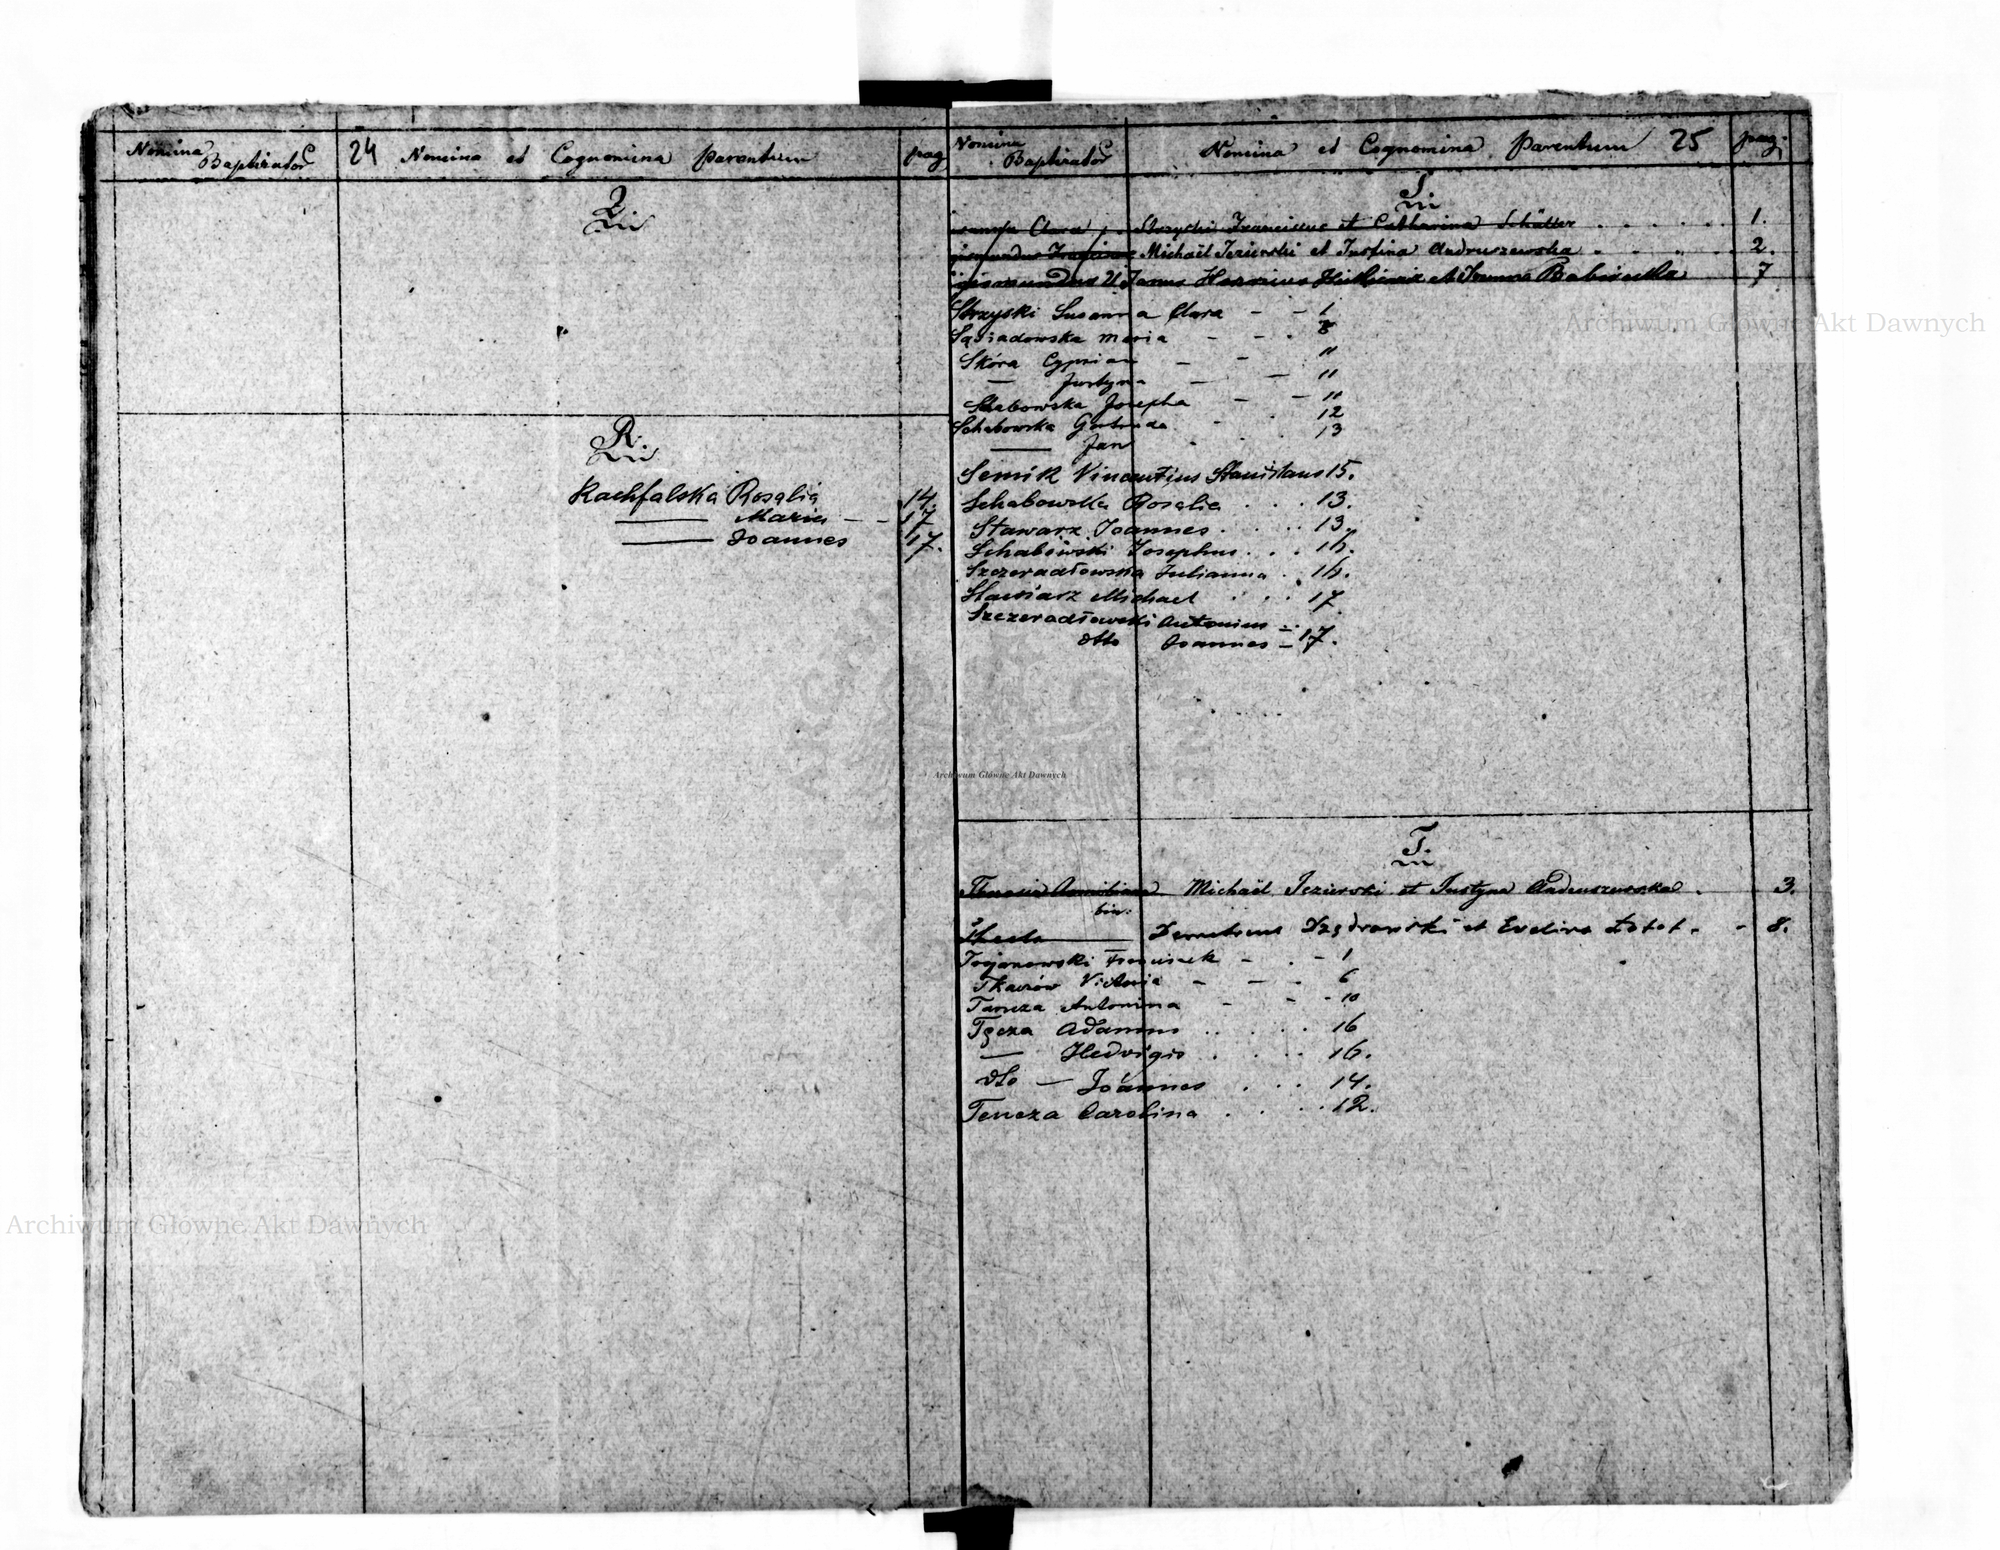 Nomina Baptizator 24 Nomina et Cognomina Parentum pag
Q.
R.
Rachfalska Rosalia 14.
—— Maria — - 17.
—— Joannes 17.
Nomina Baptizator Nomina et Cognomina Parentum 25 pag.
S.
Clara Strzyski Franciscus et Catharina Schäller . . . . . . 1.
Michaël Jezierski et Justina Andruszewska . . . . 2.
et Joanna 7
Strzyski Susanna Clara - - 1
Sąsiadowska Maria - - - 8
Skóra Cyprian - - 11
— Justyna — — 11
Schabowska Josepha - - 11
Schabowska Gertruda - . 12
—— Jan . . . 13
Semik Vincentius Stanislaus 15.
Schabowska Rosalia . . . 13.
Stawarz Joannes . . . . 13.
Schabowski Josephus . . . 16.
Szczeradłowska Julianna . . 16.
Stawiarz Michael . . . 17
Szczeradłowski Antonius —
dtto Joannes — 17.
T.
Theresia Michaël Jezierski et Justyna Andruszewska . . 3.
bin:
Thecla —— et Evelina - - 8.
Trojanowski Franciszek - . - 1
Victoria - - . 6
Tancza Antonina - - - 10
Tęcza Adamus . . . . . 16
— Hedvigis . . . . 16.
dto — Joannes . . . 14.
Tencza Carolina . . . . 12.
Archiwum Główne Akt Dawnych
Archiwum Główne Akt Dawnych
Archiwum Główne Akt Dawnych